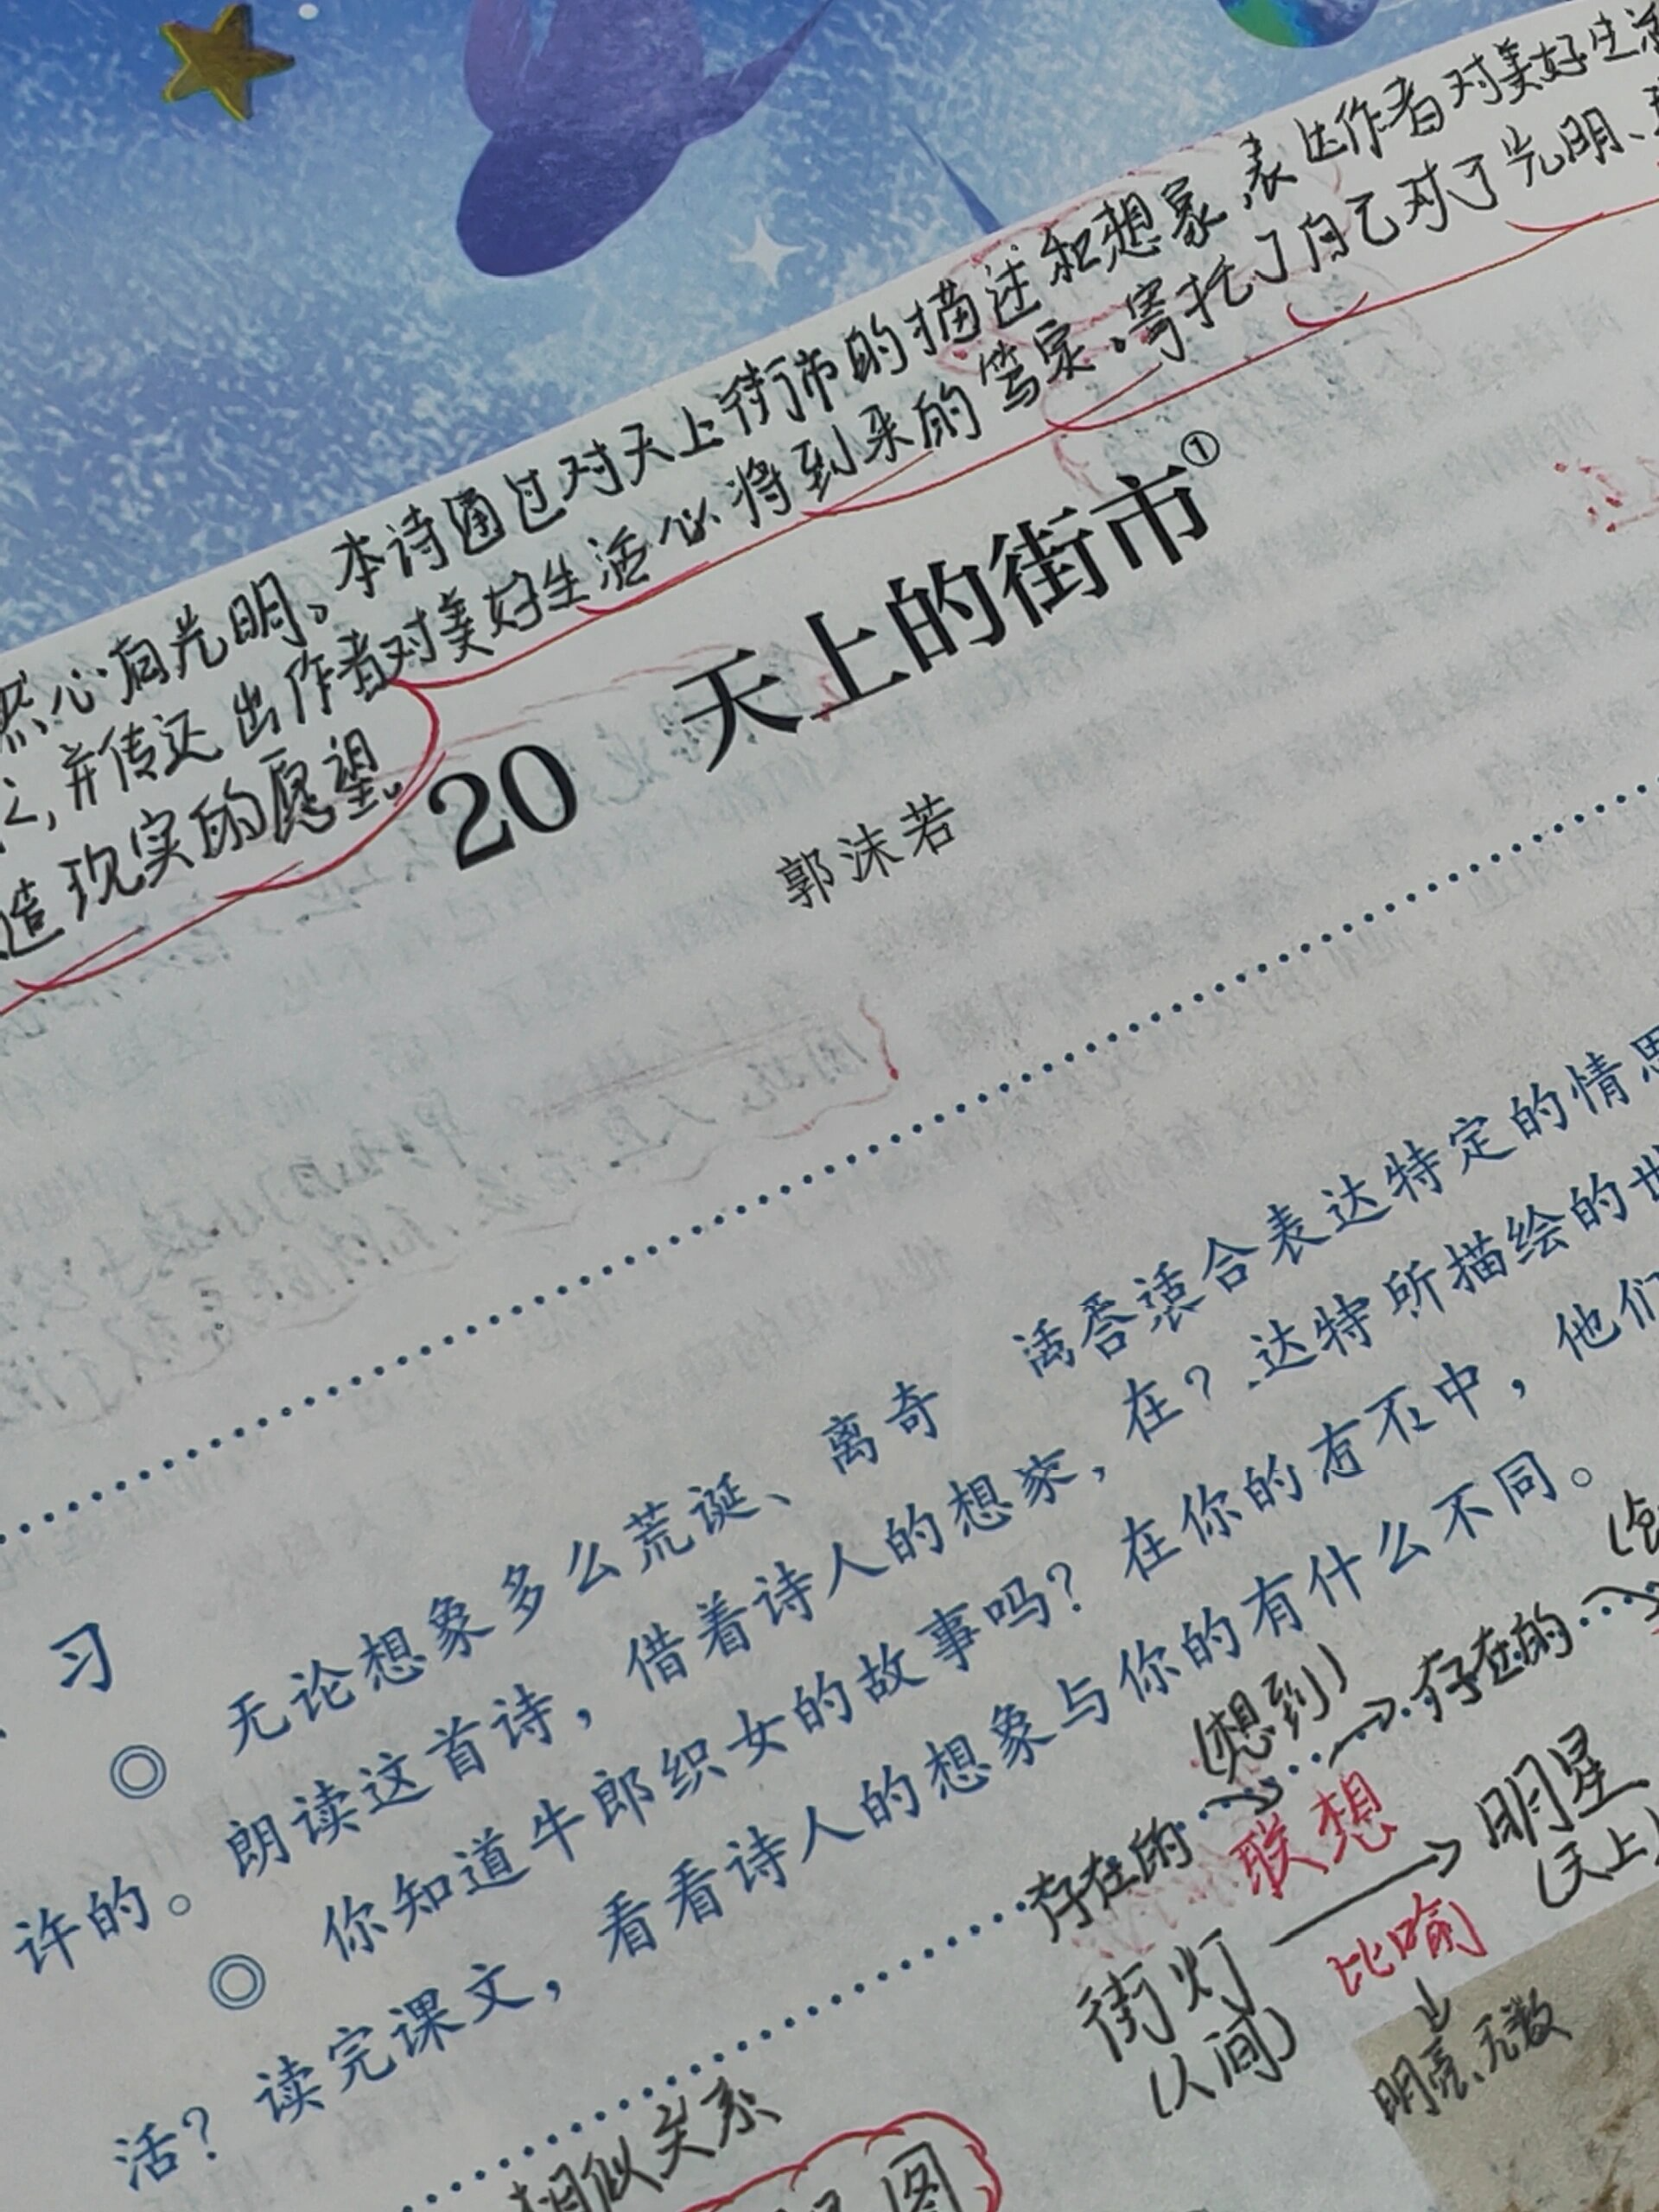 然心有光明。本诗通过对天上街市的描述和想象,表达作者对美好生活
,并传达出作者对美好生活必将到来的笃定。寄托了自己对于光明、
造现实的愿望。
20 天上的街市①
郭沫若
习
◎ 无论想象多么荒诞、离奇 合适合表达特定的情思
许的。朗读这首诗,借着诗人的想象,在?达特所描绘的世
◎ 你知道牛郎织女的故事吗?在你的有不中,他们
活?读完课文,看看诗人的想象与你的有什么不同。
(想到)
存在的 存在的
联想
街灯 明星
(人间) (天上
比喻
明亮、无数
相似关系
图